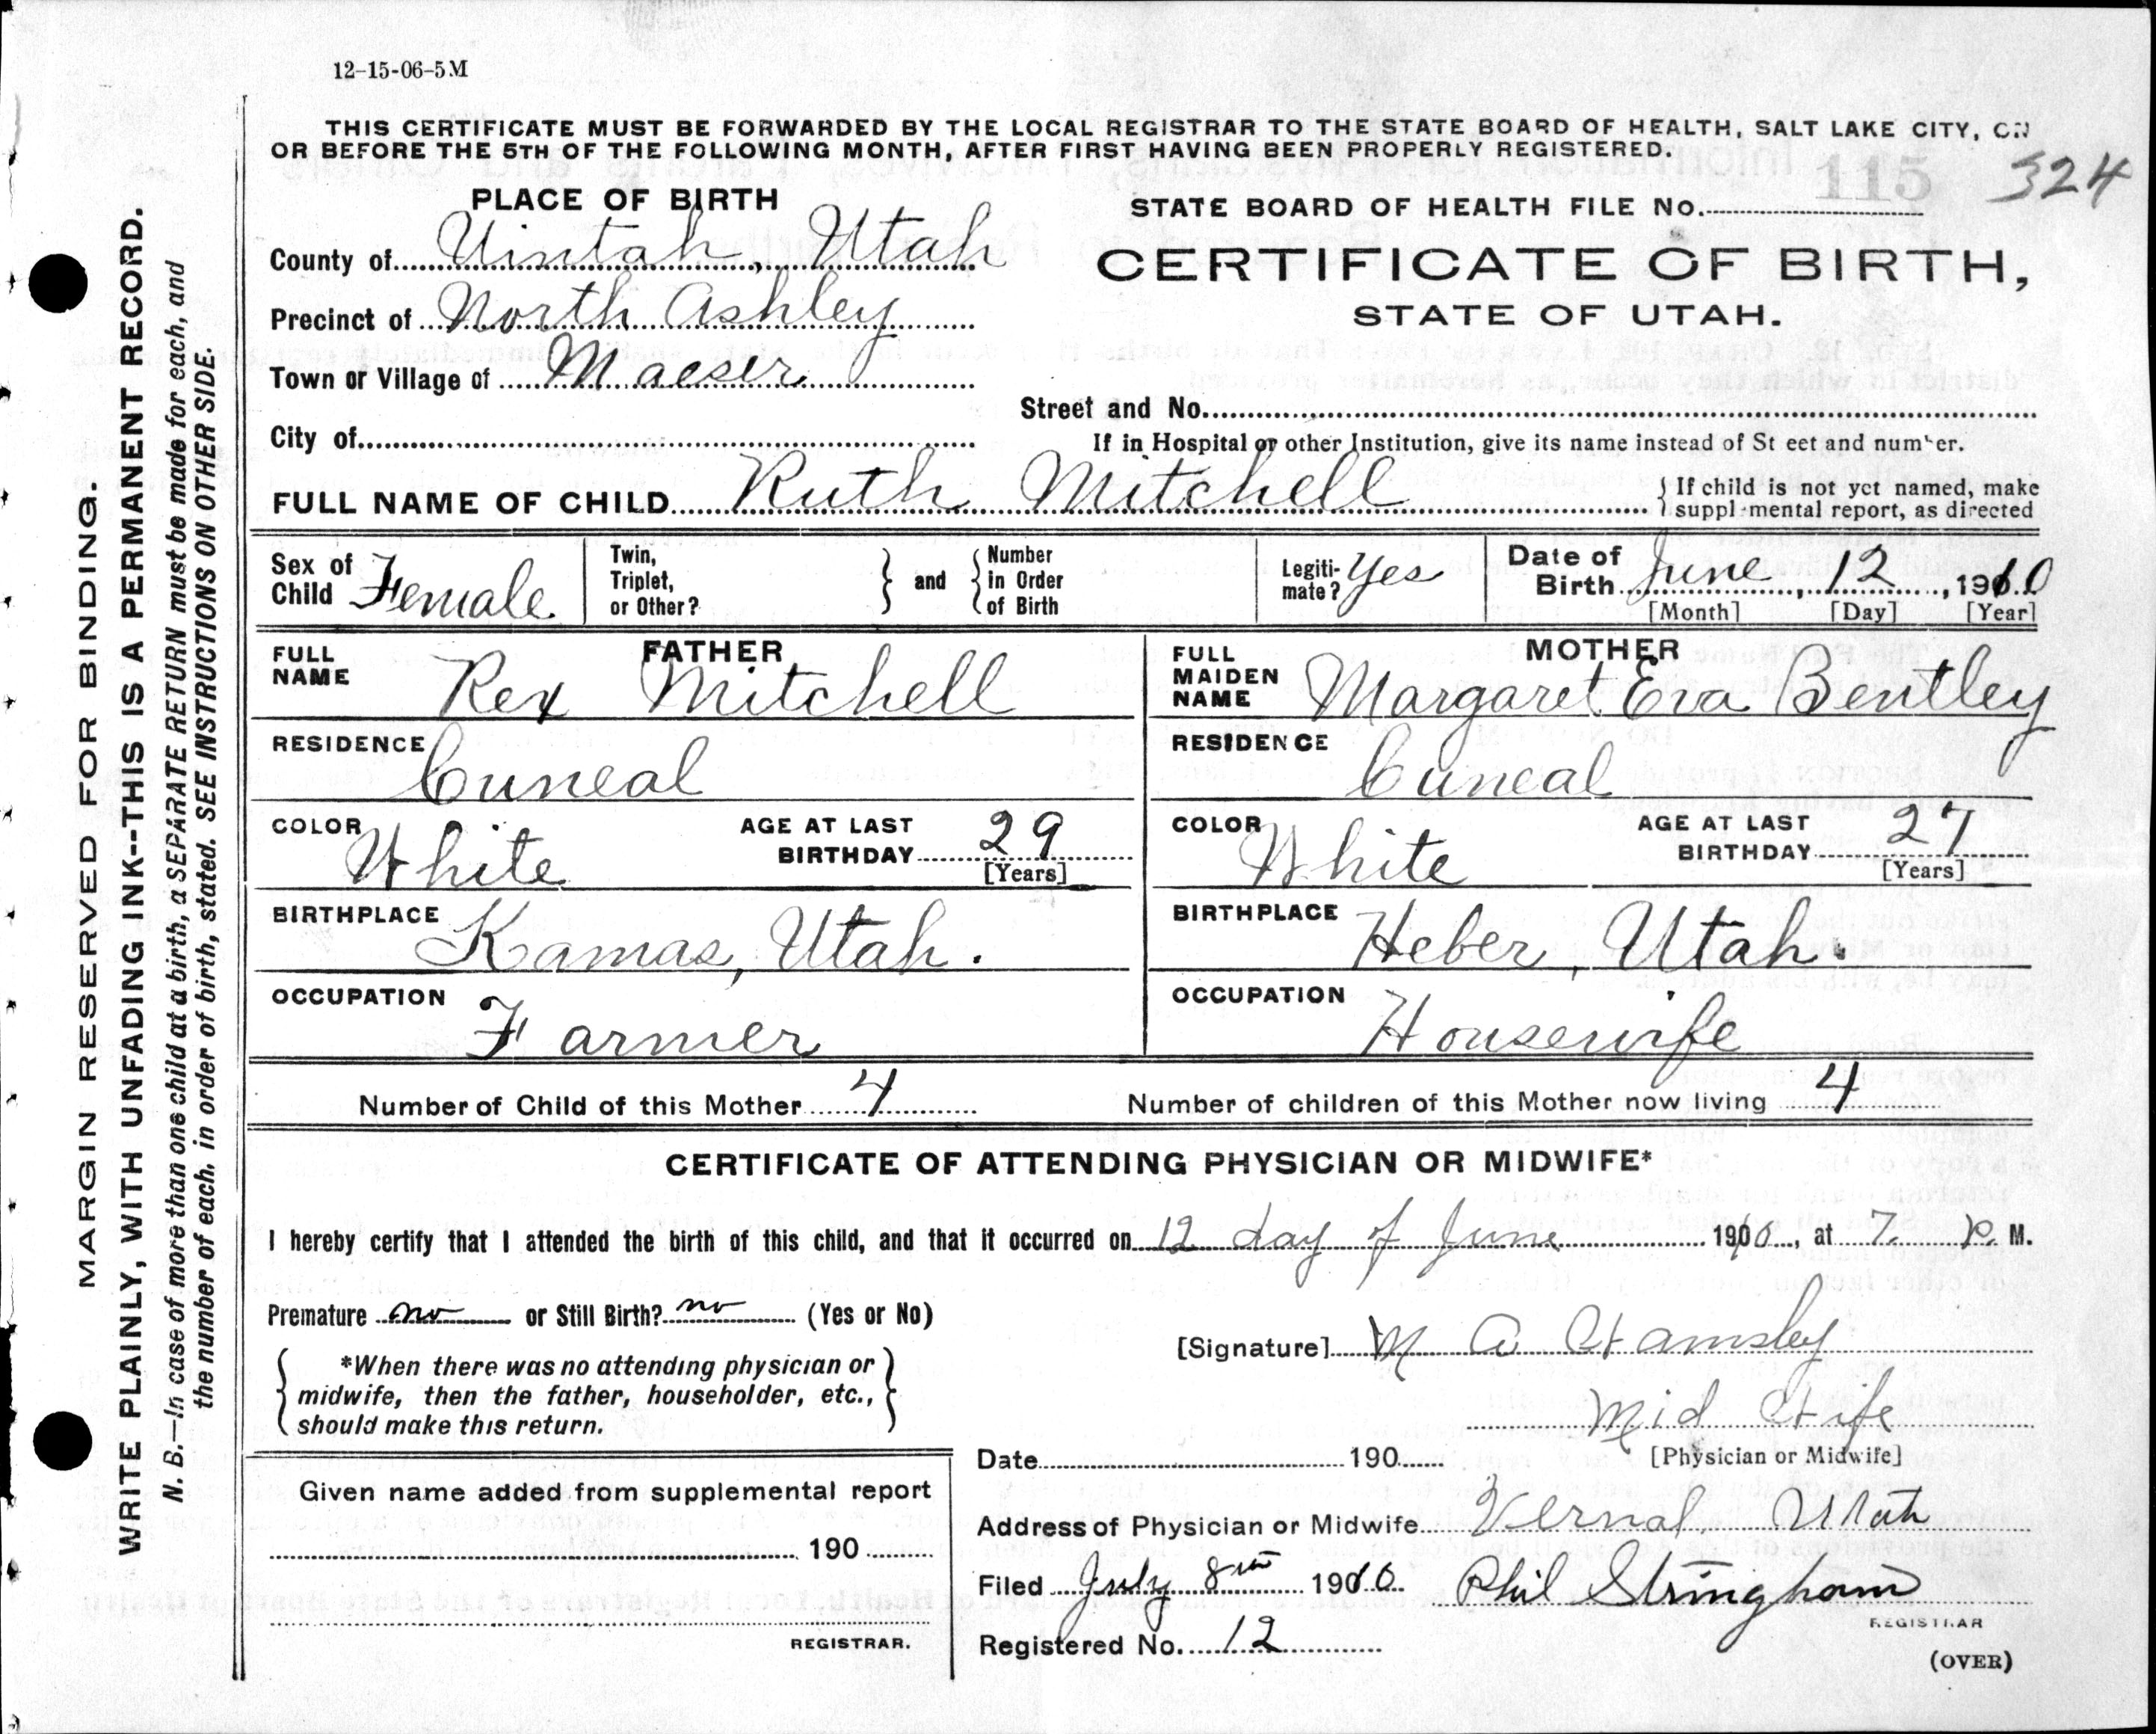 12-15-06-5M
THIS CERTIFICATE MUST BE FORWARDED BY THE LOCAL REGISTRAR TO THE STATE BOARD OF HEALTH, SALT LAKE CITY, ON
OR BEFORE THE 5TH OF THE FOLLOWING MONTH, AFTER FIRST HAVING BEEN PROPERLY REGISTERED.
324
PLACE OF BIRTH
STATE BOARD OF HEALTH FILE No. 115
County of Uintah, Utah
CERTIFICATE OF BIRTH,
Precinct of North Ashley
STATE OF UTAH.
Town or Village of Maeser
Street and No.
City of
If in Hospital or other Institution, give its name instead of St eet and number.
FULL NAME OF CHILD Ruth Mitchell
If child is not yet named, make
supplemental report, as directed
Sex of Child Female
Twin, Triplet, or Other?
and
Number in Order of Birth
Legiti-mate? Yes
Date of Birth June, 12, 1910
[Month] [Day] [Year]
FATHER
FULL NAME Rex Mitchell
RESIDENCE Cuneal
COLOR White
AGE AT LAST BIRTHDAY 29
[Years]
BIRTHPLACE Kamas, Utah.
OCCUPATION Farmer
MOTHER
FULL MAIDEN NAME Margaret Eva Bentley
RESIDENCE Cuneal
COLOR White
AGE AT LAST BIRTHDAY 27
[Years]
BIRTHPLACE Heber, Utah.
OCCUPATION Housewife
Number of Child of this Mother 4
Number of children of this Mother now living 4
CERTIFICATE OF ATTENDING PHYSICIAN OR MIDWIFE*
I hereby certify that I attended the birth of this child, and that it occurred on 12 day of June 1910, at 7. P. M.
Premature no or Still Birth? no (Yes or No)
*When there was no attending physician or
midwife, then the father, householder, etc.,
should make this return.
[Signature] M A
Mid Wife
[Physician or Midwife]
Date 190
Given name added from supplemental report
190
REGISTRAR.
Address of Physician or Midwife Vernal, Utah
Filed July 8th 1910 Phil Stringham
REGISTRAR
Registered No. 12
(OVER)
MARGIN RESERVED FOR BINDING.
WRITE PLAINLY, WITH UNFADING INK--THIS IS A PERMANENT RECORD.
N. B.—In case of more than one child at a birth, a SEPARATE RETURN must be made for each, and
the number of each, in order of birth, stated. SEE INSTRUCTIONS ON OTHER SIDE.